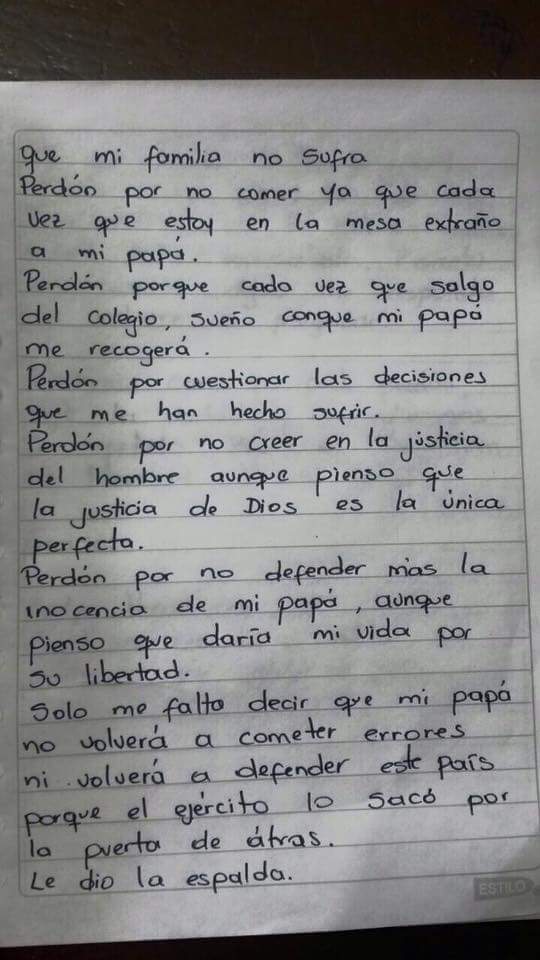 que mi familia no sufra
Perdón por no comer ya que cada
vez que estoy en la mesa extraño
a mi papá.
Perdón porque cada vez que salgo
del colegio, sueño conque mi papá
me recogerá.
Perdón por cuestionar las decisiones
que me han hecho sufrir.
Perdón por no creer en la jústicia
del hombre aunque pienso que
la justicia de Dios es la única
perfecta.
Perdón por no defender más la
inocencia de mi papá, aunque
pienso que daría mi vida por
su libertad.
Solo me falto decir que mi papá
no volverá a cometer errores
ni volverá a defender este país
porque el ejército lo sacó por
la puerta de átras.
Le dio la espalda.
ESTILO